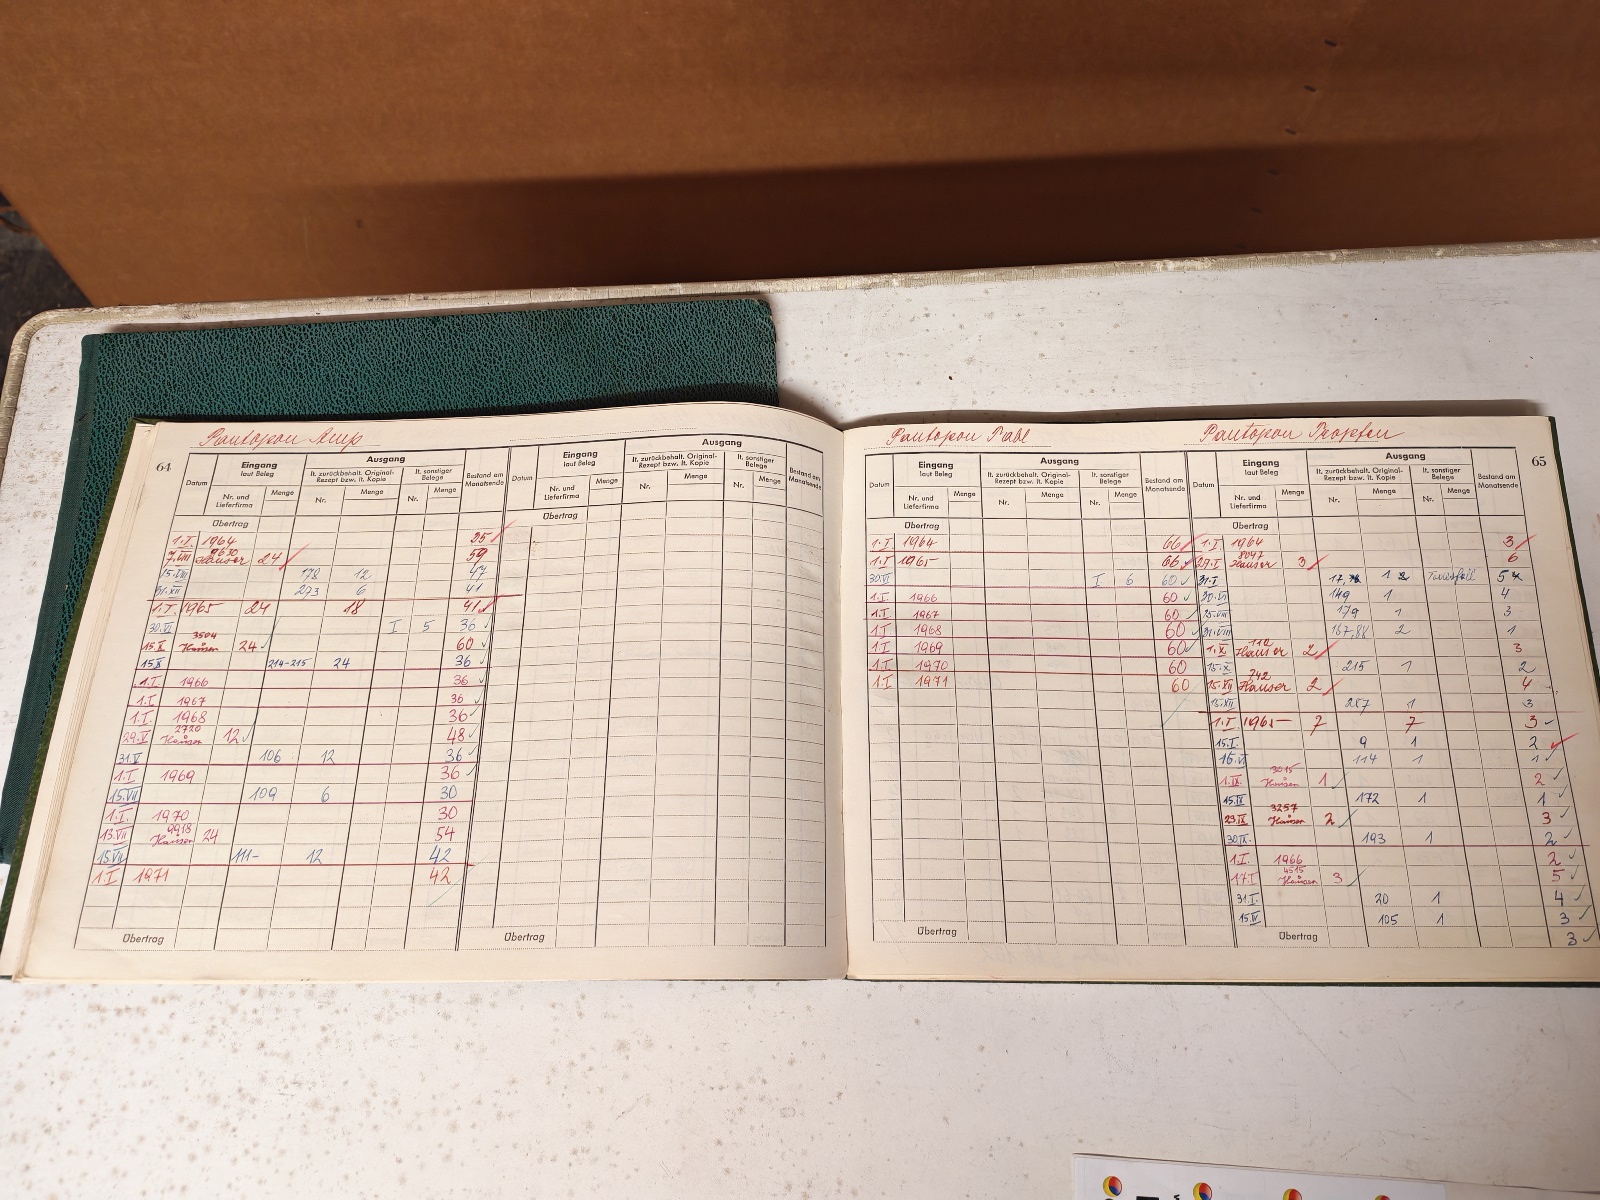 Pantopon Amp
64
Eingang
laut Beleg
Ausgang
Datum
Nr. und
Lieferfirma
Menge
lt. zurückbehalt. Original-
Rezept bzw. lt. Kopie
Nr.
Menge
lt. sonstiger
Belege
Nr.
Menge
Bestand am
Monatsende
Übertrag
1.I. 1964 35
7.VIII 9630 Hauser 24 59
15.VIII 178 12 47
31.XII 293 6 41
1.I. 1965 24 18 41
30.VI I 5 36
15.X 3504 Hauser 24 60
15.X 214-215 24 36
1.I. 1966 36
1.I. 1967 36
1.I. 1968 36
29.V 2720 Hauser 12 48
31.V 106 12 36
1.I 1969 36
15.VII 109 6 30
1.I. 1970 30
13.VII 9918 Hauser 24 54
15.VII 111- 12 42
1.I 1971 42
Übertrag
Datum
Eingang
laut Beleg
Nr. und
Lieferfirma
Menge
Ausgang
lt. zurückbehalt. Original-
Rezept bzw. lt. Kopie
Nr.
Menge
lt. sonstiger
Belege
Nr.
Menge
Bestand am
Monatsende
Übertrag
Übertrag
Pantopon Tabl
Datum
Eingang
laut Beleg
Nr. und
Lieferfirma
Menge
Ausgang
lt. zurückbehalt. Original-
Rezept bzw. lt. Kopie
Nr.
Menge
lt. sonstiger
Belege
Nr.
Menge
Bestand am
Monatsende
Übertrag
1.I 1964 66
1.I 1965 66
30.VI I 6 60
1.I. 1966 60
1.I 1967 60
1.I 1968 60
1.I 1969 60
1.I 1970 60
1.I 1971 60
Übertrag
Pantopon Tropfen
65
Datum
Eingang
laut Beleg
Nr. und
Lieferfirma
Menge
Ausgang
lt. zurückbehalt. Original-
Rezept bzw. lt. Kopie
Nr.
Menge
lt. sonstiger
Belege
Nr.
Menge
Bestand am
Monatsende
Übertrag
1.I 1964 3
29.I 8097 Hauser 3 6
31.I 17, 1 5
30.VI 149 1 4
25.VIII 179 1 3
31.VIII 187,88 2 1
1.X. 110 Hauser 2 3
15.X. 215 1 2
15.XII 742 Hauser 2 4
15.XII 287 1 3
1.I 1965 7 7 3
15.I. 9 1 2
16.VI 114 1 1
1.IX. 3015 Hauser 1 2
15.IX 172 1 1
23.IX 3257 Hauser 2 3
30.IX. 193 1 2
1.I. 1966 2
17.I 4515 Hauser 3 5
31.I. 20 1 4
15.IV 105 1 3
Übertrag 3